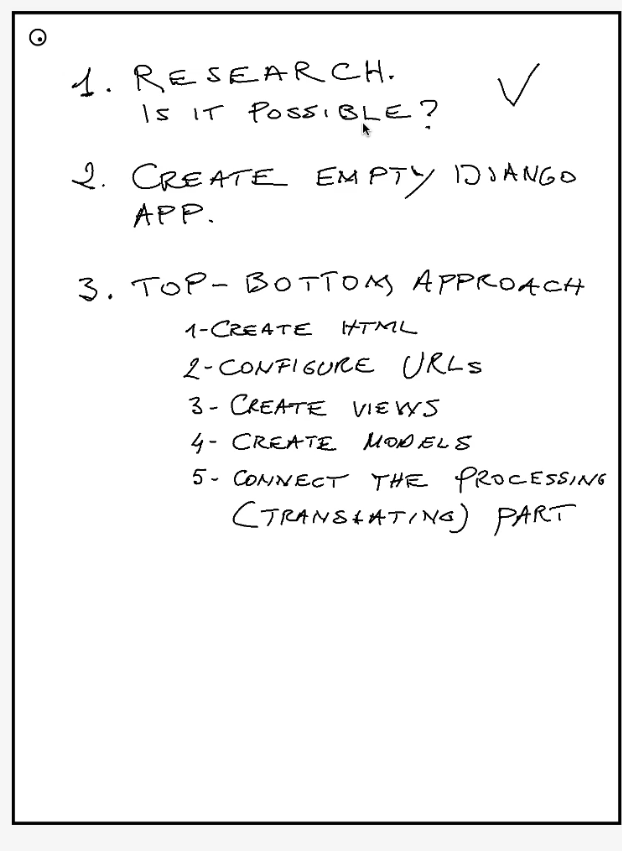 1. RESEARCH.
IS IT POSSIBLE? ✓
2. CREATE EMPTY DJANGO
APP.
3. TOP-BOTTOM APPROACH
1-CREATE HTML
2-CONFIGURE URLs
3- CREATE VIEWS
4- CREATE MODELS
5- CONNECT THE PROCESSING
(TRANSLATING) PART